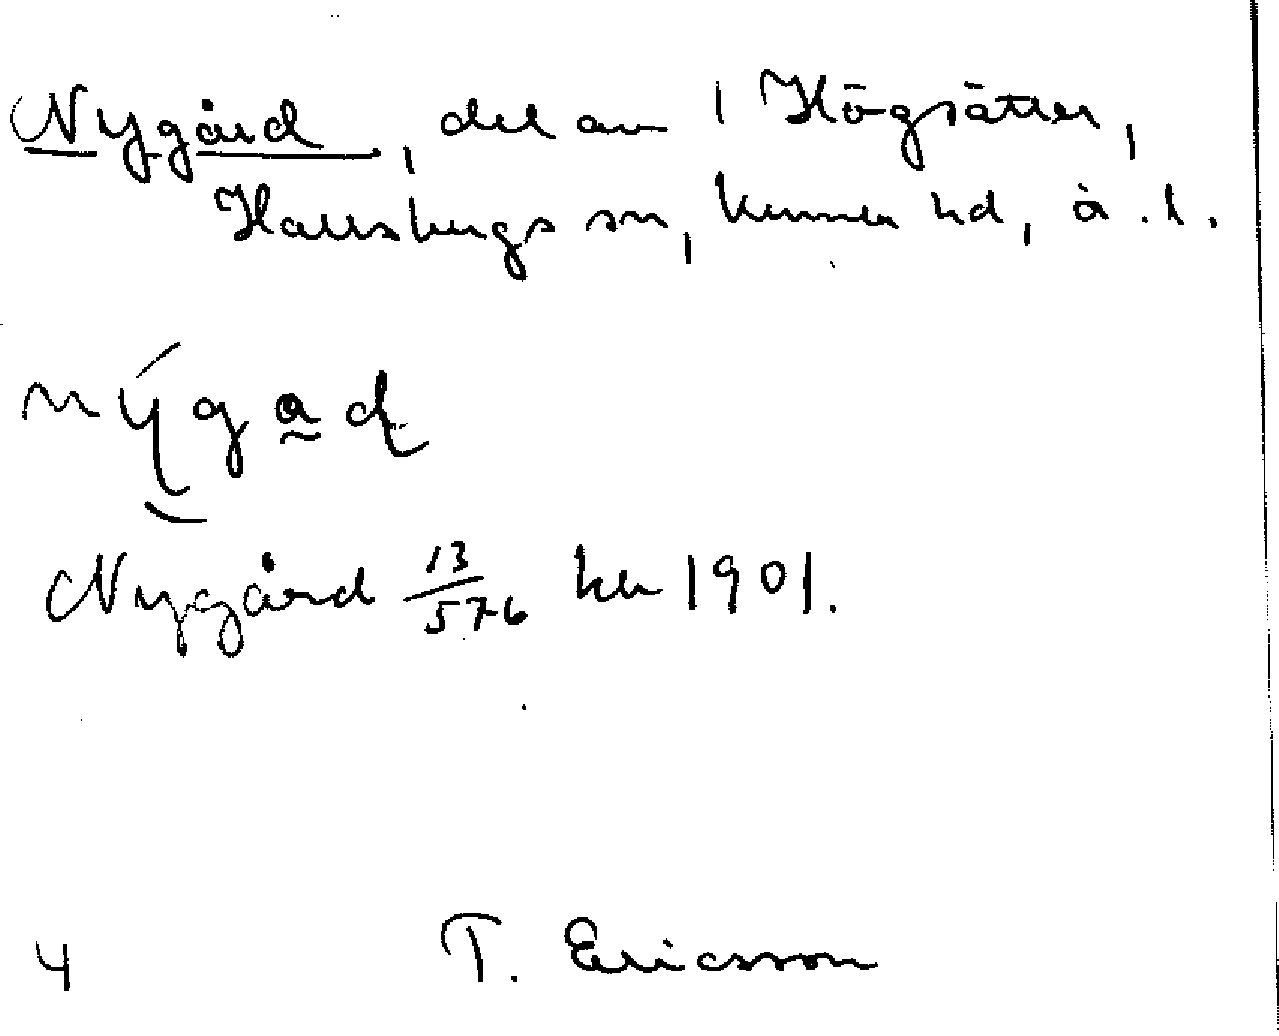 Nygård, del av 1 Högsätter,
Hallsbergs sn, Kumla hd, ö.l.
nýgaḍ
Nygård 13/576 kla 1901.
4 T. Ericsson